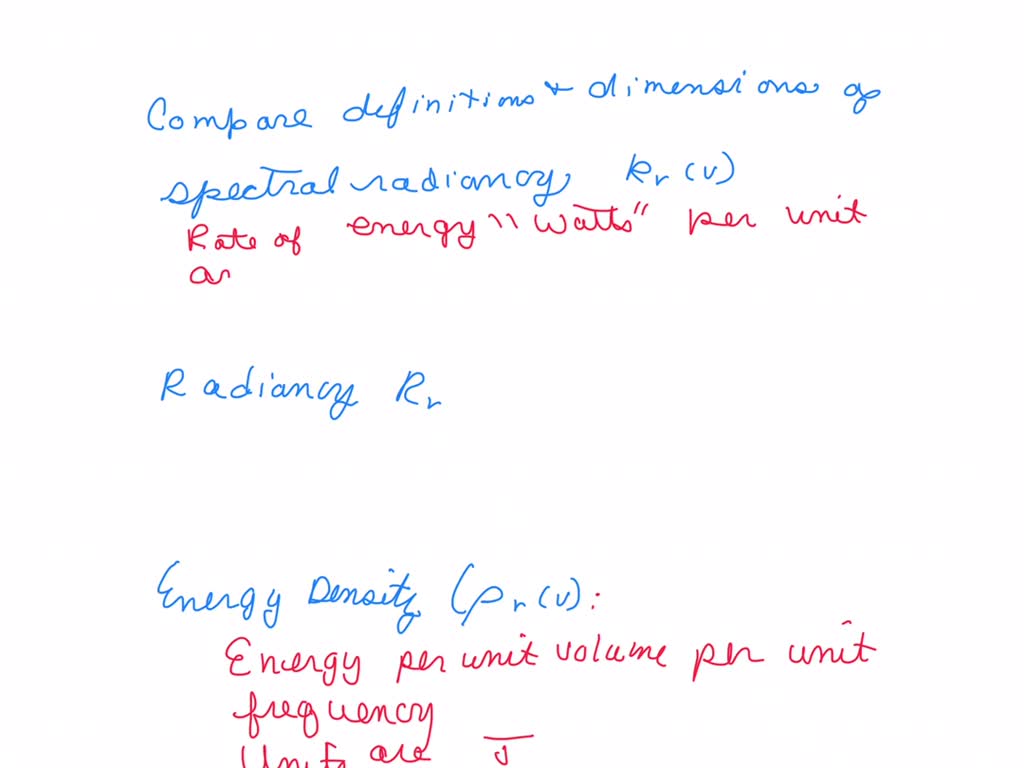 Compare definitions + dimensions of
spectral radiancy Rr (v)
Rate of energy "Watts" per unit
ar
Radiancy Rr
Energy Density (ρr (v) :
Energy per unit volume per unit
frequency
Units are J